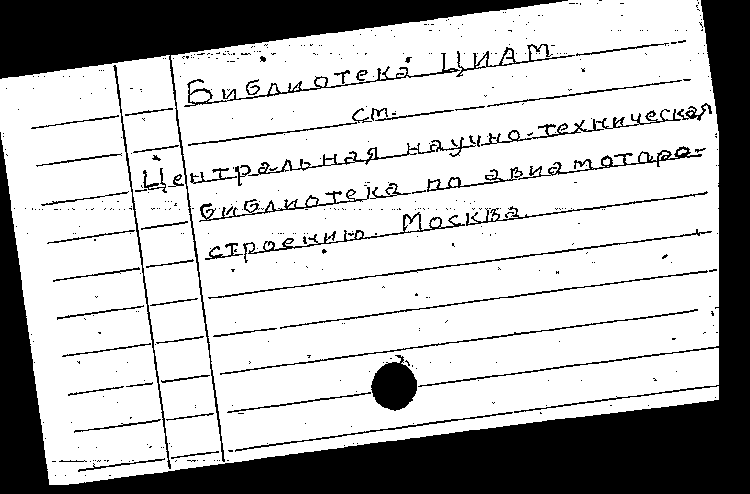 Библиотека ЦИАМ
см.
Центральная научно-техническая
библиотека по авиамоторо-
строению. Москва.